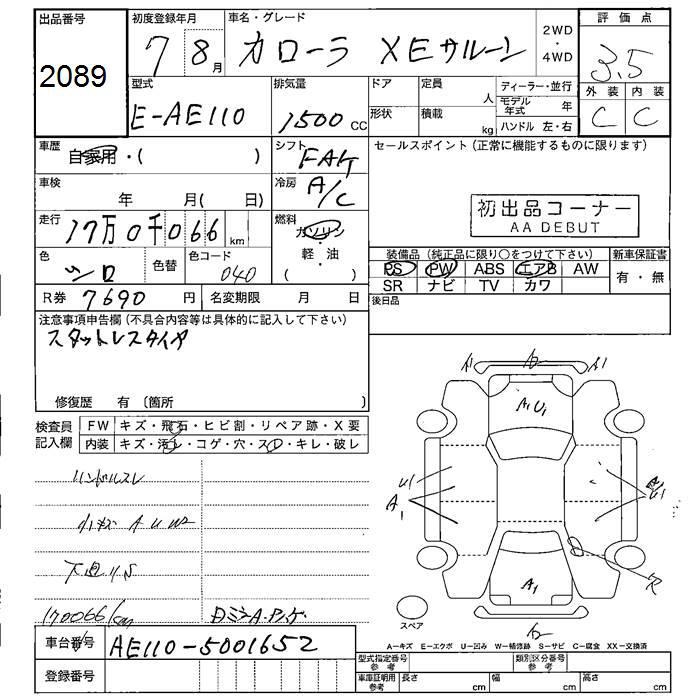 出品番号
2089
初度登録年月
7 8月
車名・グレード
カローラ XEサルーン
2WD
・
4WD
評価点
3.5
外装 内装
C C
型式
E-AE110
排気量
1500 CC
ドア
形状
定員
人
積載
kg
ディーラー・並行
モデル年式 年
ハンドル 左・右
車歴
自家用・( )
シフト
FAT
車検
年 月( 日)
冷房
A/C
走行
17万0千066 km
燃料
ガソリン
・
軽・油
( )
色
シロ
色替
色コード
040
R券 7690 円
名変期限 月 日
セールスポイント (正常に機能するものに限ります)
初出品コーナー
AA DEBUT
装備品 (純正品に限り○をつけて下さい)
PS PW ABS エアB AW
SR ナビ TV カワ
新車保証書
有・無
後日品
注意事項申告欄 (不具合内容等は具体的に記入して下さい)
スタットレスタイヤ
修復歴 有 (箇所 )
検査員
記入欄
FW キズ・飛石・ヒビ割・リペア跡・X要
内装 キズ・汚レ・コゲ・穴・スレ・キレ・破レ
ハンドルスレ
小キズ A U W2
下廻り S
170066km
車台番号
AE110-5001652
登録番号
A1 A1
A1 U1
U1
A1
U1
A1
スペア
A=キズ E=エクボ U=凹み W=補修跡 S=サビ C=腐食 XX=交換済
型式指定番号
参考
類別区分番号
参考
車庫証明用
参考
長さ cm
幅 cm
高さ cm